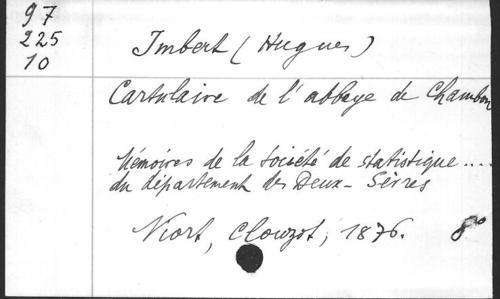 97
225
10
Imbert (Hugues)
Cartulaire de l'abbaye de Chambon
Mémoires de la Société de statistique....
du département des Deux-Sèvres
Niort, Clouzot, 1876. 8°